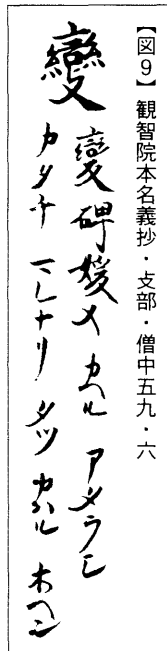 【図9】観智院本名義抄・攴部・僧中五九・六
變
變碑媛メ カヘル アメラシ
カタチ マレナリ タツ カハル ホヘン